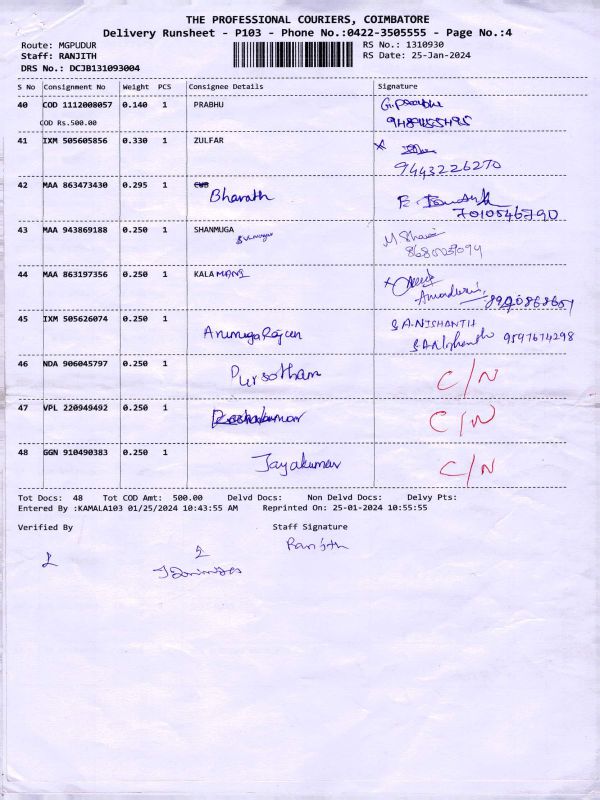 THE PROFESSIONAL COURIERS, COIMBATORE
Delivery Runsheet - P103 - Phone No.:0422-3505555 - Page No.:4
Route: MGPUDUR
RS No.: 1310930
Staff: RANJITH
RS Date: 25-Jan-2024
DRS No.: DCJB131093004
S No Consignment No Weight PCS Consignee Details Signature
40 COD 1112008057 0.140 1 PRABHU
COD Rs.500.00
9489455495
41 IXM 505605856 0.330 1 ZULFAR
9443226270
42 MAA 863473430 0.295 1 Bharath
7010546790
43 MAA 943869188 0.250 1 SHANMUGA
44 MAA 863197356 0.250 1 KALA MANI
45 IXM 505626074 0.250 1 S A.NISHANTH
9597674298
46 NDA 906045797 0.250 1 Pursotham C/N
47 VPL 220949492 0.250 1 C/N
48 GGN 910490383 0.250 1 Jayakumar C/N
Tot Docs: 48 Tot COD Amt: 500.00 Delvd Docs: Non Delvd Docs: Delvy Pts:
Entered By :KAMALA103 01/25/2024 10:43:55 AM Reprinted On: 25-01-2024 10:55:55
Verified By Staff Signature
Ranjith